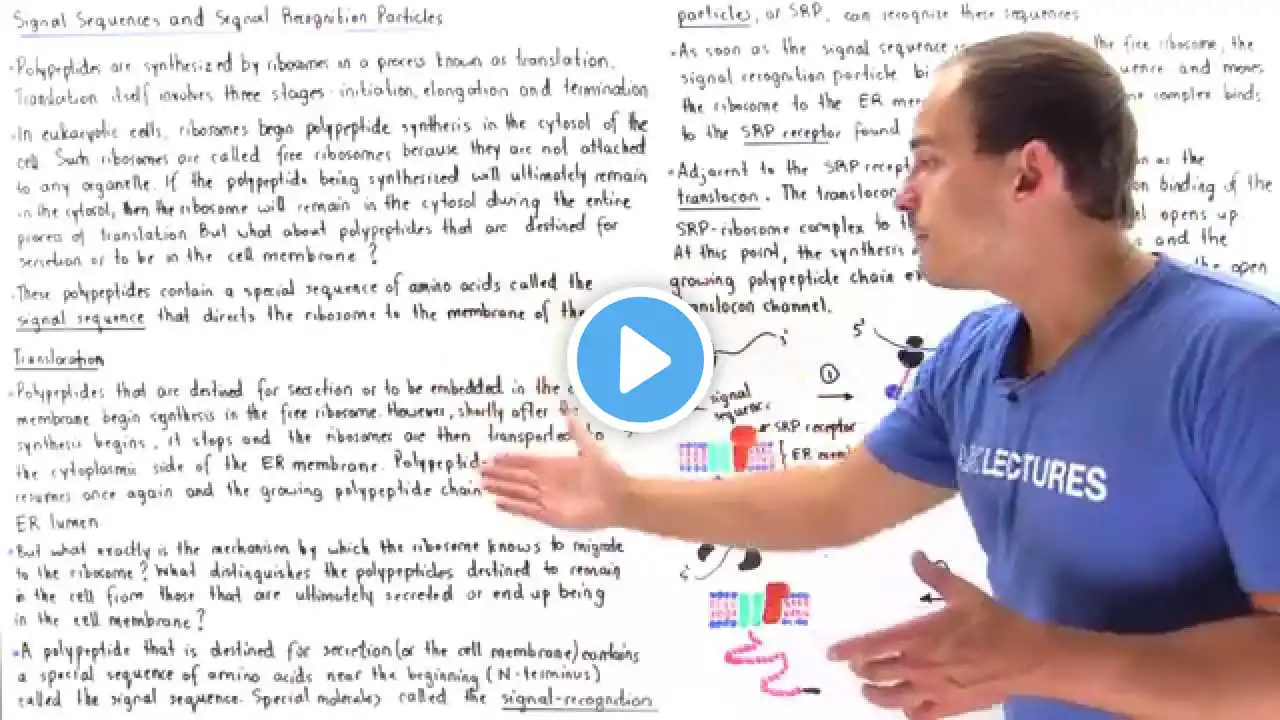 Signal Sequences and Signal Recognition Particles
•Polypeptides are synthesized by ribosomes in a process known as translation.
Translation itself involves three stages: initiation, elongation and termination
•In eukaryotic cells, ribosomes begin polypeptide synthesis in the cytosol of the
cell. Such ribosomes are called free ribosomes because they are not attached
to any organelle. If the polypeptide being synthesized will ultimately remain
in the cytosol, then the ribosome will remain in the cytosol during the entire
process of translation. But what about polypeptides that are destined for
secretion or to be in the cell membrane?
•These polypeptides contain a special sequence of amino acids called the
signal sequence that directs the ribosome to the membrane of the
Translocation
•Polypeptides that are destined for secretion or to be embedded in the
membrane begin synthesis in the free ribosome. However, shortly after
synthesis begins, it stops and the ribosomes are then transported to
the cytoplasmic side of the ER membrane. Polypeptide
resumes once again and the growing polypeptide chain
ER lumen
•But what exactly is the mechanism by which the ribosome knows to migrate
to the ribosome? What distinguishes the polypeptides destined to remain
in the cell from those that are ultimately secreted or end up being
in the cell membrane?
•A polypeptide that is destined for secretion (or the cell membrane) contains
a special sequence of amino acids near the beginning (N-terminus)
called the signal sequence. Special molecules called the signal-recognition
particles, or SRP, can recognize these sequences
•As soon as the signal sequence the free ribosome, the
signal recognition particle and moves
the ribosome to the ER complex binds
to the SRP receptor found
•Adjacent to the SRP as the
translocon. The binding of the
SRP-ribosome complex to opens up
At this point, the synthesis and the
growing polypeptide chain the open
translocon channel.
3'
5'
1
signal
sequence
SRP receptor
ER
5'
LECTURES